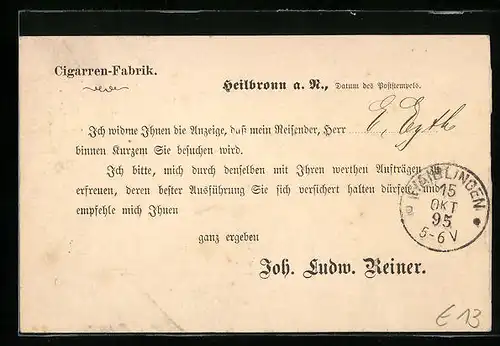 Cigarren-Fabrik.
Heilbronn a. N., Datum des Poststempels.
Ich widme Ihnen die Anzeige, daß mein Reisender, Herr E. Eyth
binnen Kurzem Sie besuchen wird.
Ich bitte, mich durch denselben mit Ihren werthen Aufträgen zu
erfreuen, deren bester Ausführung Sie sich versichert halten dürfen, und
empfehle mich Ihnen
ganz ergeben
Joh. Ludw. Reiner.
15
OKT
95
5-6 V
€ 13